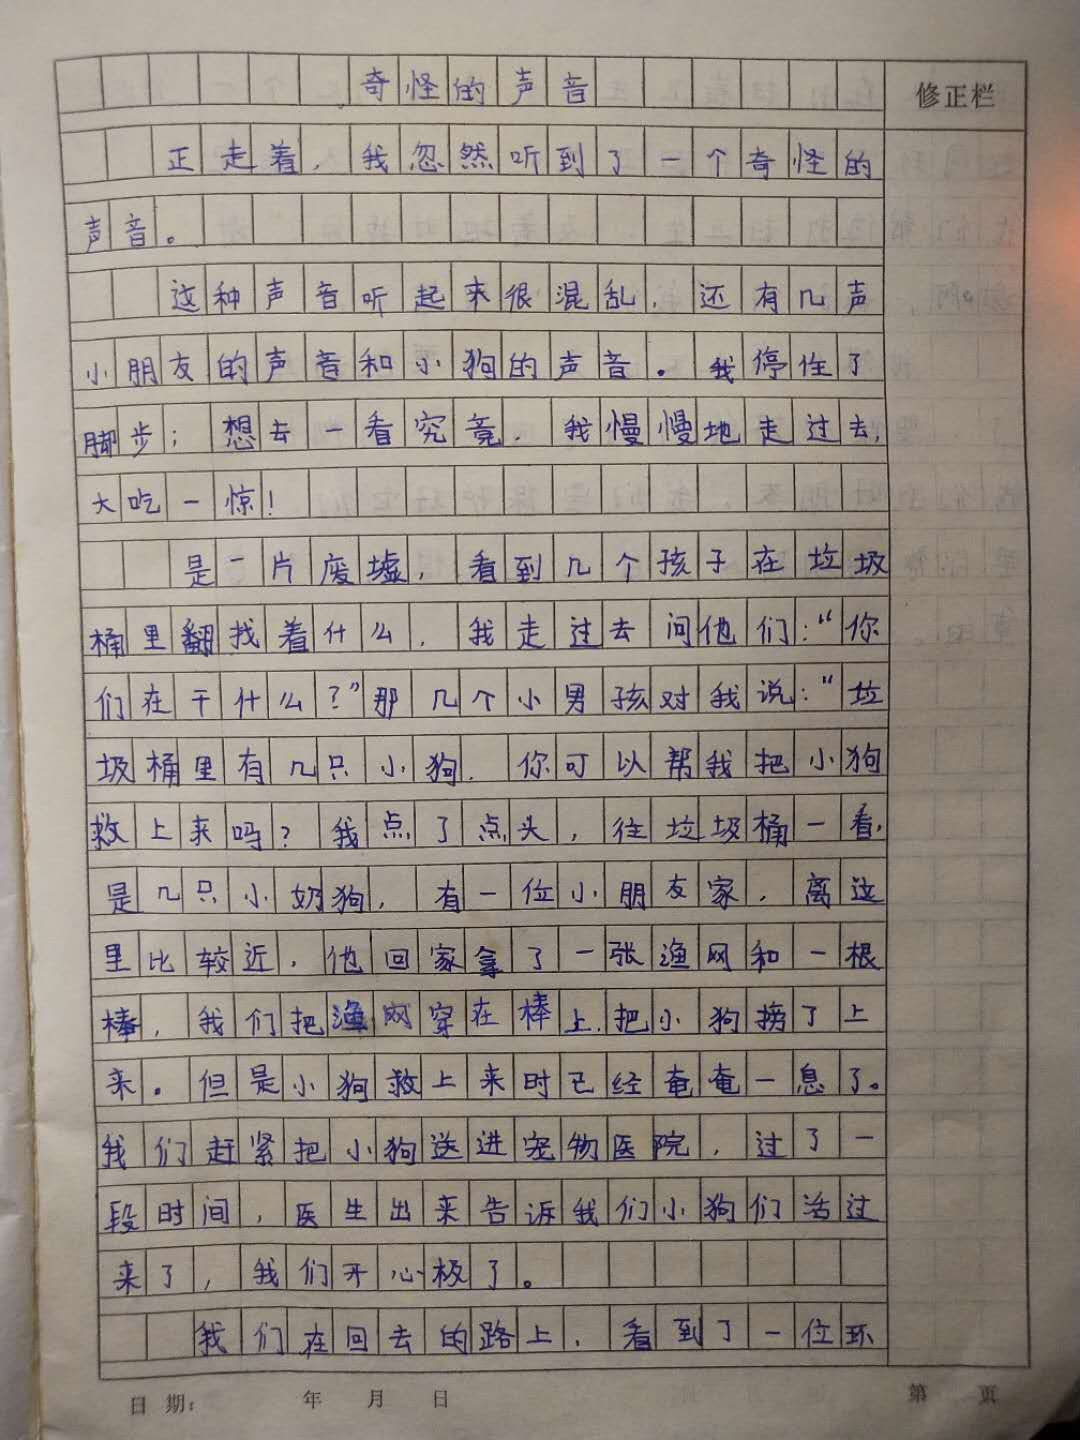 奇怪的声音
修正栏
正走着，我忽然听到了一个奇怪的
声音。
这种声音听起来很混乱，还有几声
小朋友的声音和小狗的声音。我停住了
脚步；想去一看究竟，我慢慢地走过去，
大吃一惊！
是一片废墟，看到几个孩子在垃圾
桶里翻找着什么，我走过去问他们：“你
们在干什么？”那几个小男孩对我说：“垃
圾桶里有几只小狗，你可以帮我把小狗
救上来吗？我点了点头，往垃圾桶一看，
是几只小奶狗，有一位小朋友家，离这
里比较近，他回家拿了一张渔网和一根
棒，我们把渔网穿在棒上，把小狗捞了上
来。但是小狗救上来时已经奄奄一息了。
我们赶紧把小狗送进宠物医院，过了一
段时间，医生出来告诉我们小狗们活过
来了，我们开心极了。
我们在回去的路上，看到了一位环
日期： 年 月 日 第 页